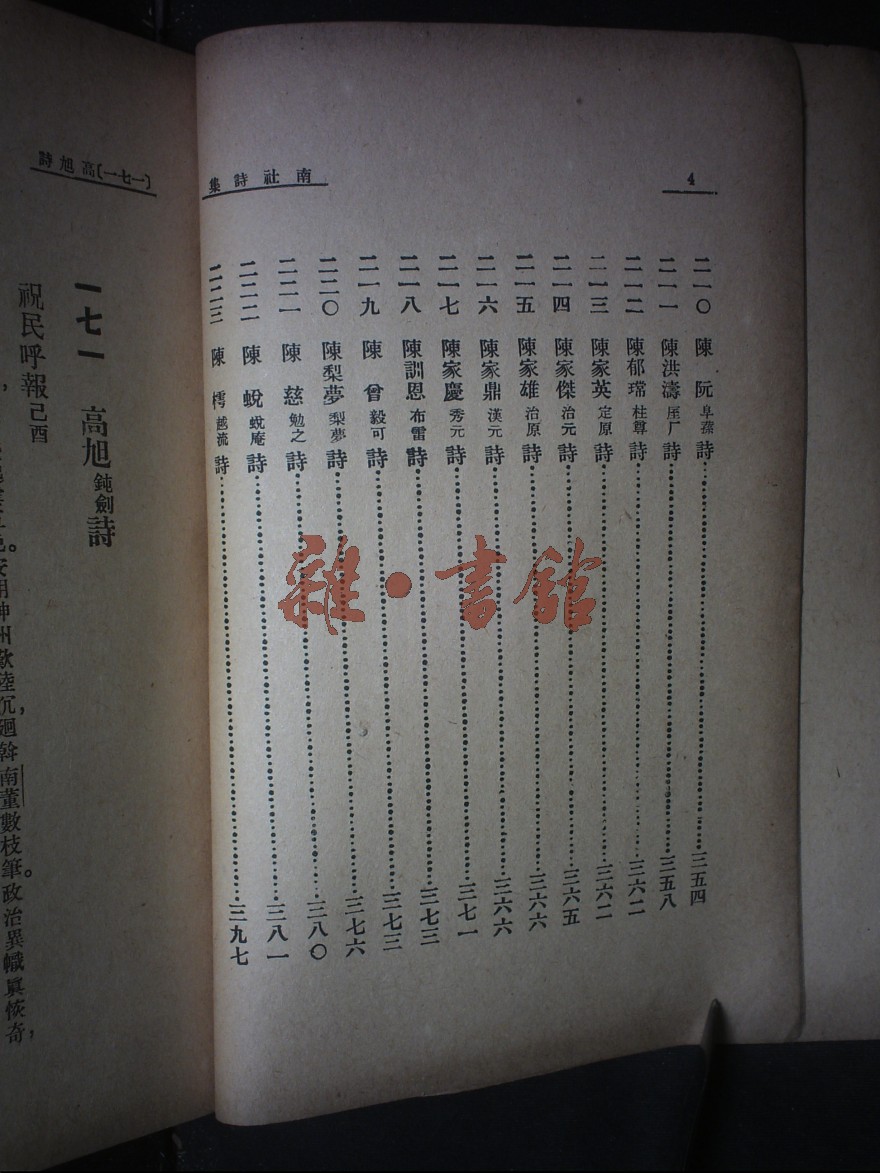 4
南社詩集
二一〇 陳阮 阜蓀 詩 三五四
二一一 陳洪濤 厓厂 詩 三五八
二一二 陳郁瑺 柱尊 詩 三六二
二一三 陳家英 定原 詩 三六二
二一四 陳家傑 治元 詩 三六五
二一五 陳家雄 治原 詩 三六六
二一六 陳家鼎 漢元 詩 三六六
二一七 陳家慶 秀元 詩 三七一
二一八 陳訓恩 布雷 詩 三七三
二一九 陳曾 毅可 詩 三七三
二二〇 陳梨夢 梨夢 詩 三七六
二二一 陳慈 勉之 詩 三八〇
二二二 陳蛻 蛻庵 詩 三八一
二二三 陳樗 越流 詩 三九七
雜·書館
(一七一)高旭詩
一七一 高旭 鈍劍 詩
祝民呼報己酉
神州歎陸沉,廻斡南董數枝筆。政治異幟眞恢奇,